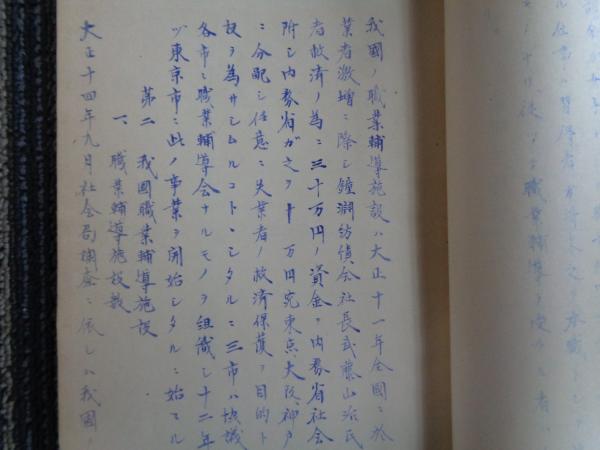 我國ノ職業輔導施設ハ大正十一年全國ニ於
業者激増ニ際シ鐘淵紡績会社長武藤山治氏
者救済ノ為ニ三十万円ノ資金ヲ内務省社会
附シ内務省ガ之ヲ十万円宛東京大阪神戸
ニ分配シ任意ニ失業者ノ救済保護ヲ目的ト
設ヲ為サシムルコトヽシタルニ三市ハ協議
各市ニ職業輔導会ナルモノヲ組織シ十二年
ヅ東京市ニ此ノ事業ヲ開始シタルニ始マル
第二 我國職業輔導施設
一、職業輔導施設数
大正十四年九月社会局調査ニ依レハ我國ノ
職業輔導ヲ